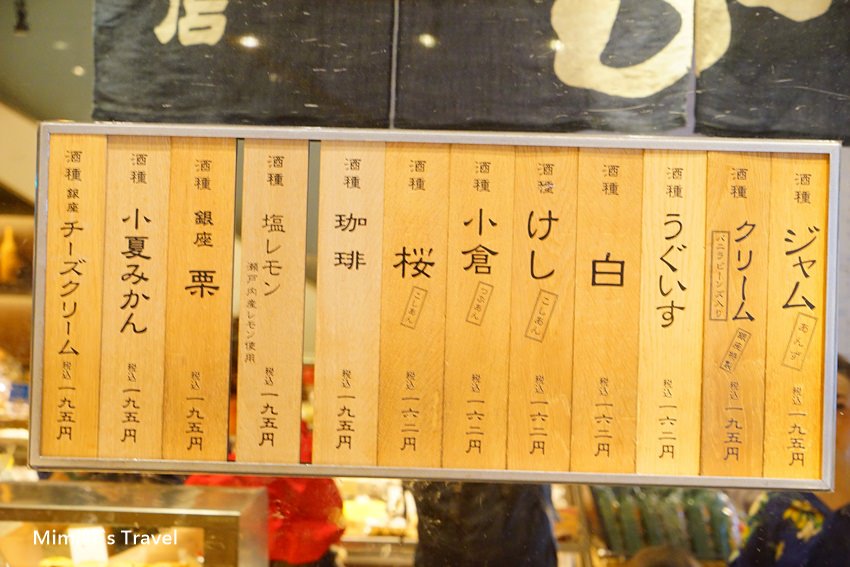 店
酒種 ジャム あんず 税込 一九五円
酒種 クリーム バニラビーンズ入り 税込 一九五円
酒種 うぐいす 税込 一六二円
酒種 白 税込 一六二円
酒種 けし こしあん 税込 一六二円
酒種 小倉 つぶあん 税込 一六二円
酒種 桜 こしあん 税込 一六二円
酒種 珈琲 税込 一九五円
酒種 塩レモン 瀬戸内産レモン使用 税込 一九五円
酒種 銀座 栗 税込 一九五円
酒種 小夏みかん 税込 一九五円
酒種 銀座 チーズクリーム 税込 一九五円
Travel